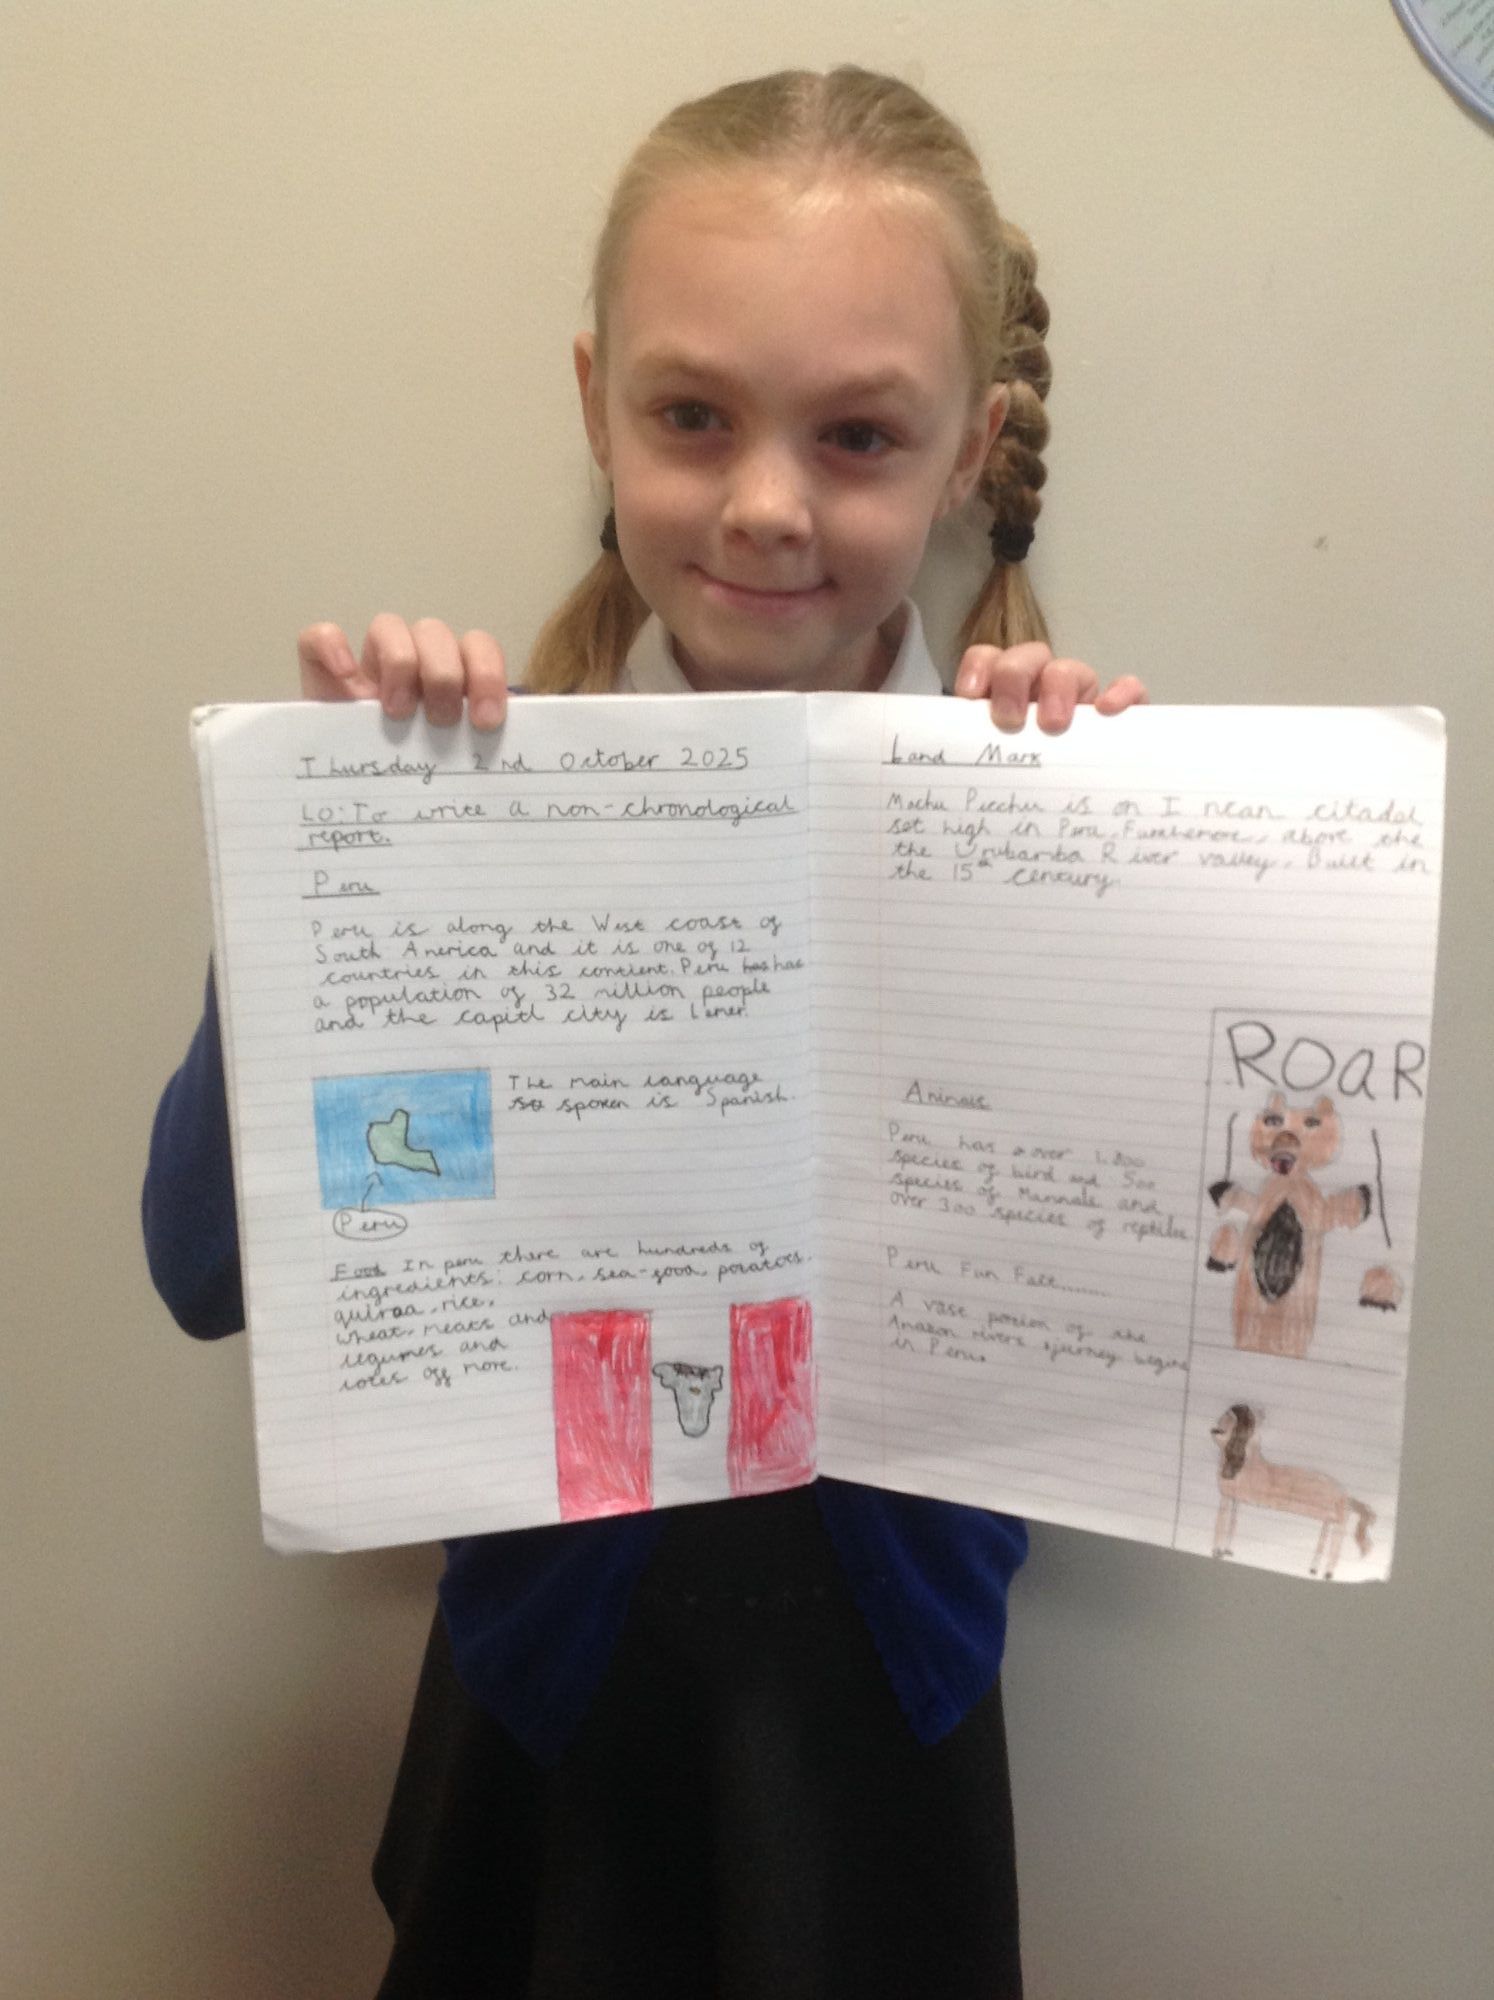 Thursday 2nd October 2025
LO: To write a non-chronological
report.
Peru
Peru is along the West coast of
South America and it is one of 12
countries in this contient. Peru has has
a population of 32 million people
and the capitl city is Lemer.
The main language
so spoken is Spanish.
Peru
Food In peru there are hundreds of
ingredients: corn, sea-food, potatoes,
quinoa, rice,
wheat, meats and
legumes and
lotes off more.
Land Mark
Machu Picchu is an Incan citadel
set high in Peru. Furthermore, above the
the Urubamba River valley. Built in
the 15th century.
ROAR
Animals
Peru has over 1,800
species of bird and 500
species of Mammals and
over 300 species of reptiles
Peru Fun Fact.......
A vast portion of the
Amazon rivers journey begins
in Peru.